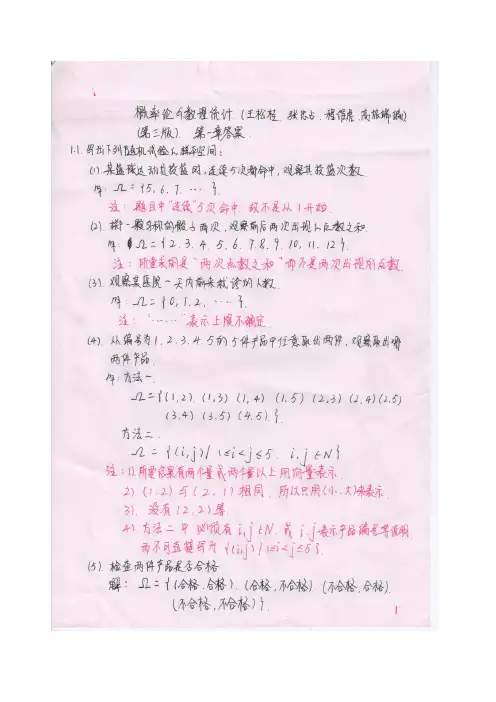 概率论与数理统计 (王松桂 张忠占 程维虎 高旅端编)
(第三版) 第一章答案
1.1. 写出下列随机试验的样本空间:
(1). 某篮球运动员投篮时, 连续5次都命中, 观察其投篮次数
解: Ω={5, 6, 7, … }.
注: 题目中"连续"5次命中. 故不是从1开始.
(2). 掷一颗匀称的骰子两次, 观察前后两次出现的点数之和.
解: Ω={2. 3. 4. 5. 6. 7. 8. 9. 10. 11. 12}.
注: 所要求的是"两次点数之和"而不是两次出现的点数.
(3). 观察某医院一天内前来就诊的人数.
解: Ω={0, 1, 2, ……}.
注: "……"表示上限不确定.
(4). 从编号为1. 2. 3. 4. 5的5件产品中任意取出两件, 观察取出哪
两件产品.
解: 方法一.
Ω={(1,2). (1,3) (1,4) (1.5) (2,3) (2,4) (2.5)
(3.4) (3.5) (4.5).}.
方法二.
Ω={(i,j)| 1≤i<j≤5. i,j∈N}
注: 1). 所要结果有两个量或两个量以上用向量表示.
2) (1.2)与(2.1)相同. 所以只用(小.大)来表示.
3). 没有(2.2)等.
4) 方法二中必须有i,j∈N. 或i.j表示产品编号等说明.
而不可直接写为{(i,j)|1≤i<j≤5}.
(5). 检查两件产品是否合格
解: Ω={(合格.合格). (合格, 不合格) (不合格.合格).
(不合格, 不合格)}.
1